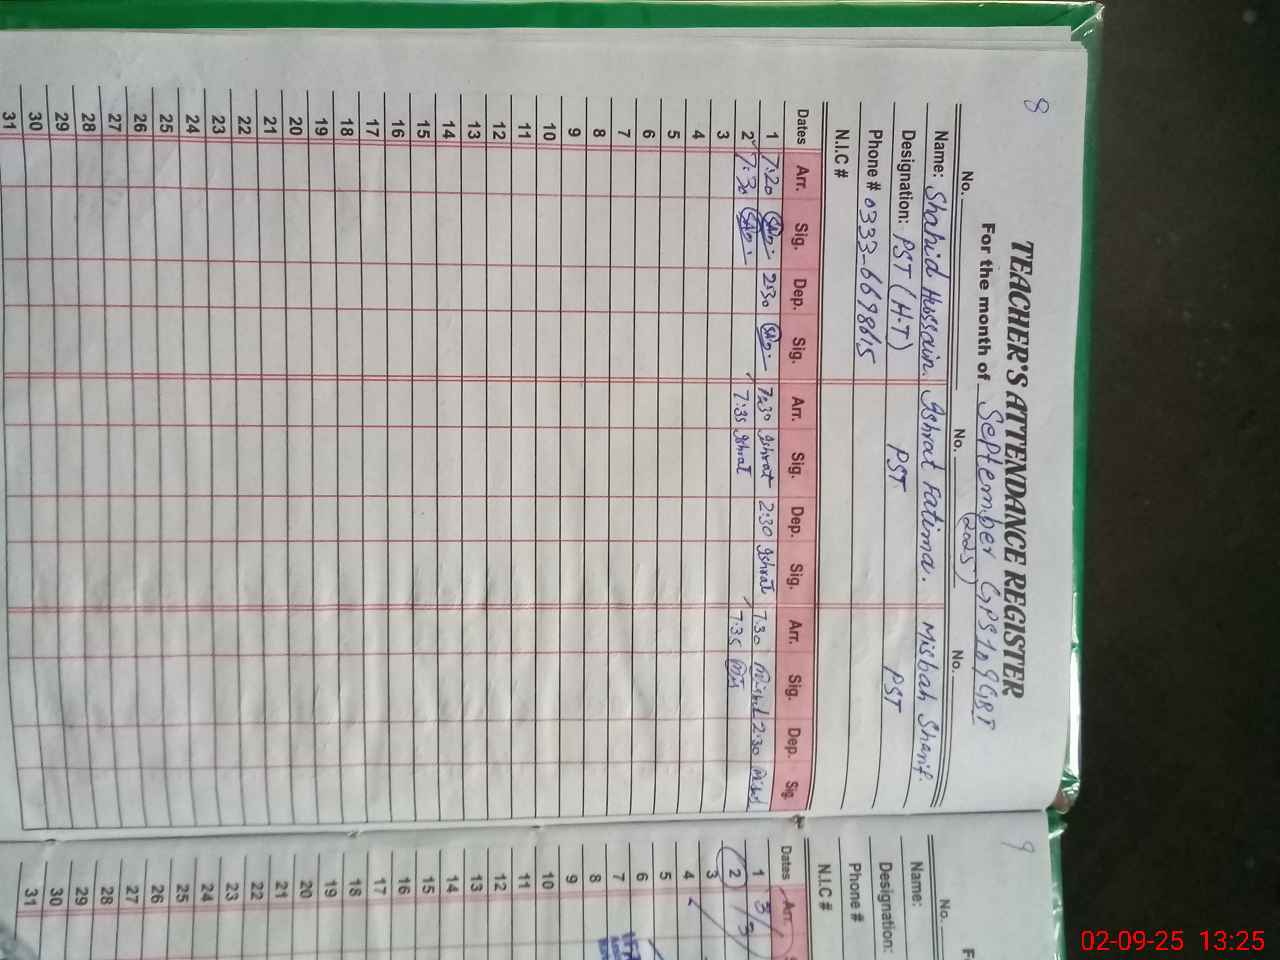 8
TEACHER'S ATTENDANCE REGISTER
For the month of September GPS
(2025)
No. No. No.
Name: Shahid Hussain. Ishrat Fatima. Misbah Sharif.
Designation: PST (H.T) PST PST
Phone # 0333-6698615
N.I.C #
Dates Arr. Sig. Dep. Sig. Arr. Sig. Dep. Sig. Arr. Sig. Dep. Sig.
1 7:20 2:30 7:30 Ishrat 2:30 Ishrat 7:30 2:30
2 7:30 7:35 Ishrat 7:35
3
4
5
6
7
8
9
10
11
12
13
14
15
16
17
18
19
20
21
22
23
24
25
26
27
28
29
30
31
9
No.
Name:
Designation:
Phone #
N.I.C #
Dates Arr.
1 3/3
2
3
4
5
6
7
8
9
10
11
12
13
14
15
16
17
18
19
20
21
22
23
24
25
26
27
28
29
30
31
02-09-25 13:25